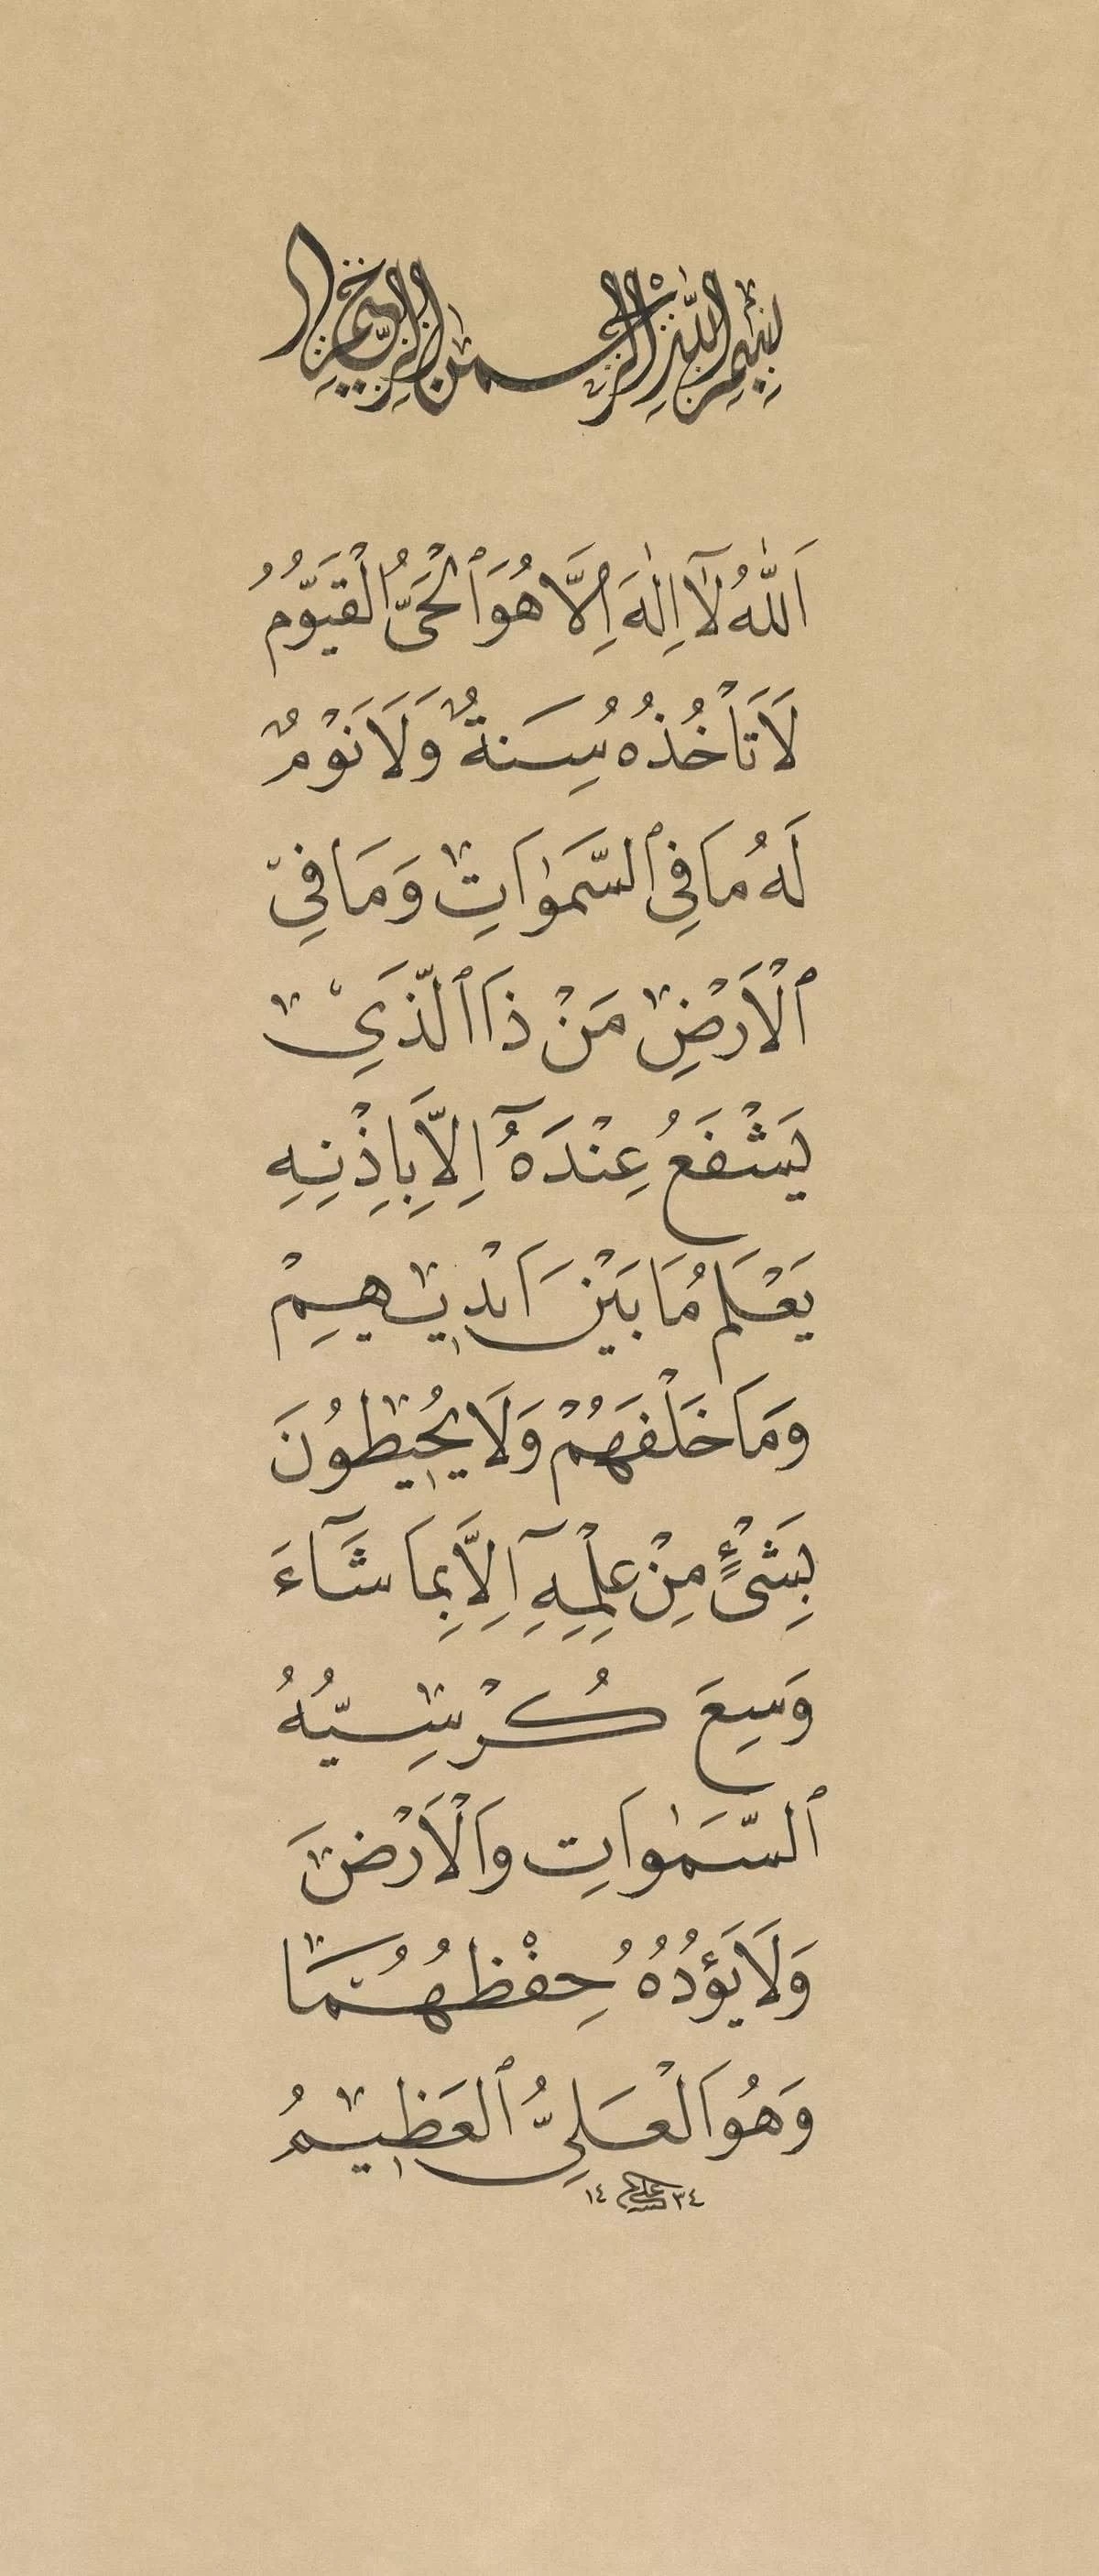 بِسْمِ اللّٰهِ الرَّحْمٰنِ الرَّحِيمِ
اَللّٰهُ لَآ اِلٰهَ اِلَّا هُوَ ٱلْحَىُّ الْقَيُّومُ
لَا تَأْخُذُهُ سِنَةٌ وَلَا نَوْمٌ
لَهُ مَا فِي ٱلسَّمٰوَاتِ وَمَا فِي
ٱلْاَرْضِ مَنْ ذَا ٱلَّذِي
يَشْفَعُ عِنْدَهُٓ اِلَّا بِاِذْنِهِ
يَعْلَمُ مَا بَيْنَ اَيْدِيهِمْ
وَمَا خَلْفَهُمْ وَلَا يُحِيطُونَ
بِشَىْءٍ مِنْ عِلْمِهِٓ اِلَّا بِمَا شَآءَ
وَسِعَ كُرْسِيُّهُ
ٱلسَّمٰوَاتِ وَالْاَرْضَ
وَلَا يَؤُدُهُ حِفْظُهُمَا
وَهُوَ الْعَلِيُّ ٱلْعَظِيمُ
٣٤ ١٤